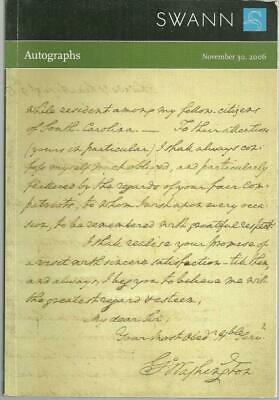 SWANN
Autographs
November 30, 2006
while resident among my fellow-citizens
of South Carolina. — To their attention
(yours in particular) I shall always con-
fess myself much obliged, and particularly
flattered by the regards of your fair com-
patriots, to whom I wish upon every occa-
sion, to be remembered with grateful respect.
I shall realise your promise of
a visit with sincere satisfaction - till then
and always, I beg you to believe me with
the greatest regard & esteem,
My dear Sir,
Your most Obed. Hble Serv.
G. Washington